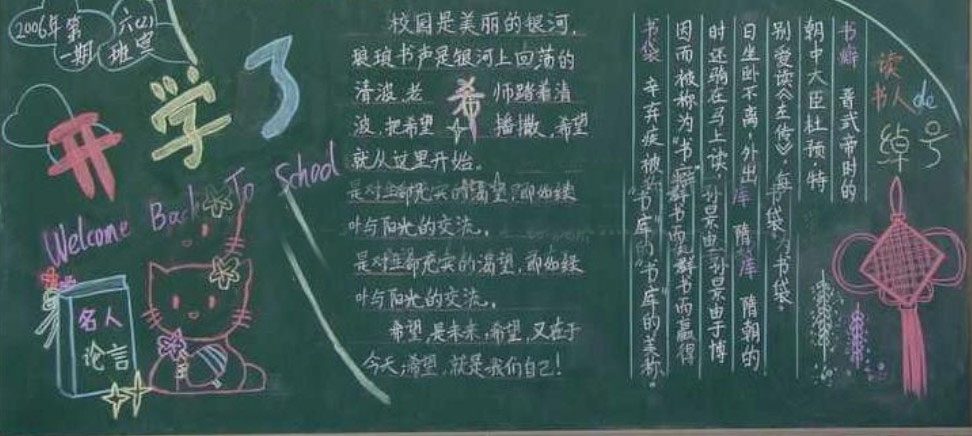 2006年第
一期
六(2)
班宣
开学了
Welcome Back To School
名人
论言
校园是美丽的银河，
琅琅书声是银河上回荡的
清波，老 希 师踏着清
波，把希望 播撒，希望
就从这里开始。
是对生命充实的渴望，即如绿
叶与阳光的交流。
是对生命充实的渴望，即如绿
叶与阳光的交流。
希望，是未来，希望，又在于
今天，希望，就是我们自己！
读书人de绰号
书癖 晋武帝时的
朝中大臣杜预，特
别爱读《左传》，每
日坐卧不离，外出
时还驹在马上读，
因而被称为"书
书袋 辛弃疾被
书袋为书袋。
库 隋库 隋朝的
孙景由孙景由于博
群书而群书而赢得
"书库的"书库的美称。